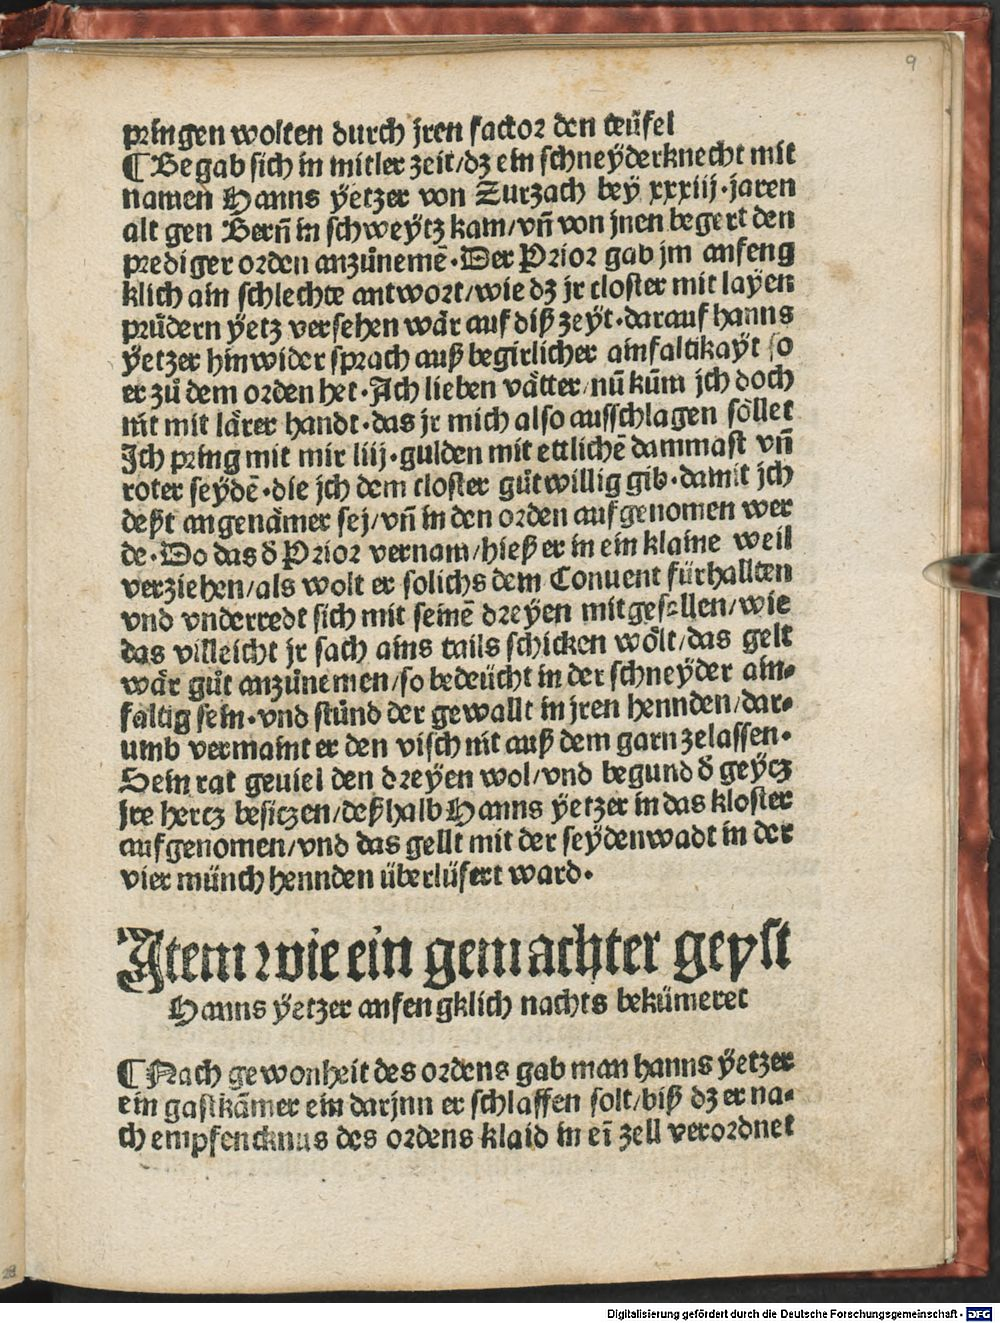 9
pringen wolten durch jren factor den teüfel
¶ Begab sich in mitler zeit/dz ein schneyderknecht mit
namen Hanns ÿetzer von Zurzach beÿ xxxiij·jaren
alt gen Bern̄ in schweÿtz kam/vn̄ von jnen begert den
prediger orden anzůnemē·Der Prior gab jm anfeng
klich ain schlechte antwort/wie dz jr closter mit layen
průdern ÿetz versehen wår auf diß zeyt·darauf hanns
ÿetzer hinwider sprach auß begirlicher ainfaltikaÿt so
er zů dem orden het·Ach lieben våtter/nū kūm jch doch
nit mit lårer handt·das jr mich also ausschlagen sőllet
Ich pring mit mir liij·gulden mit ettlichē dammast vn̄
roter seÿdē·die jch dem closter gůtwillig gib·damit jch
deßt angenåmer sej/vn̄ in den orden aufgenomen wer
de·Do das d̄ Prior vernam/hieß er in ein klaine weil
verziehen/als wolt er solichs dem Conuent fürhallten
vnd vnderredt sich mit seinē dreÿen mitgesellen/wie
das villeicht jr sach ains tails schicken wőlt/das gelt
wår gůt anzůnemen/so bedeücht in der schneÿder ain-
faltig sein·vnd stůnd der gewallt in jren hennden/dar-
umb vermaint er den visch nit auß dem garn zelassen·
Sein rat geuiel den dreÿen wol/vnd begund d̄ geÿcz
jre hercz besiczen/deßhalb Hanns ÿetzer in das kloster
aufgenomen/vnd das gellt mit der seÿdenwadt in der
vier münch hennden überlüfert ward·
Item wie ein gemachter geyst
Hanns ÿetzer anfengklich nachts bekümeret
¶ Nach gewonheit des ordens gab man hanns ÿetzer
ein gastkām̄er ein darjnn er schlaffen solt/biß dz er na-
ch empfencknus des ordens klaid in eī zell verordnet
28
Digitalisierung gefördert durch die Deutsche Forschungsgemeinschaft - DFG